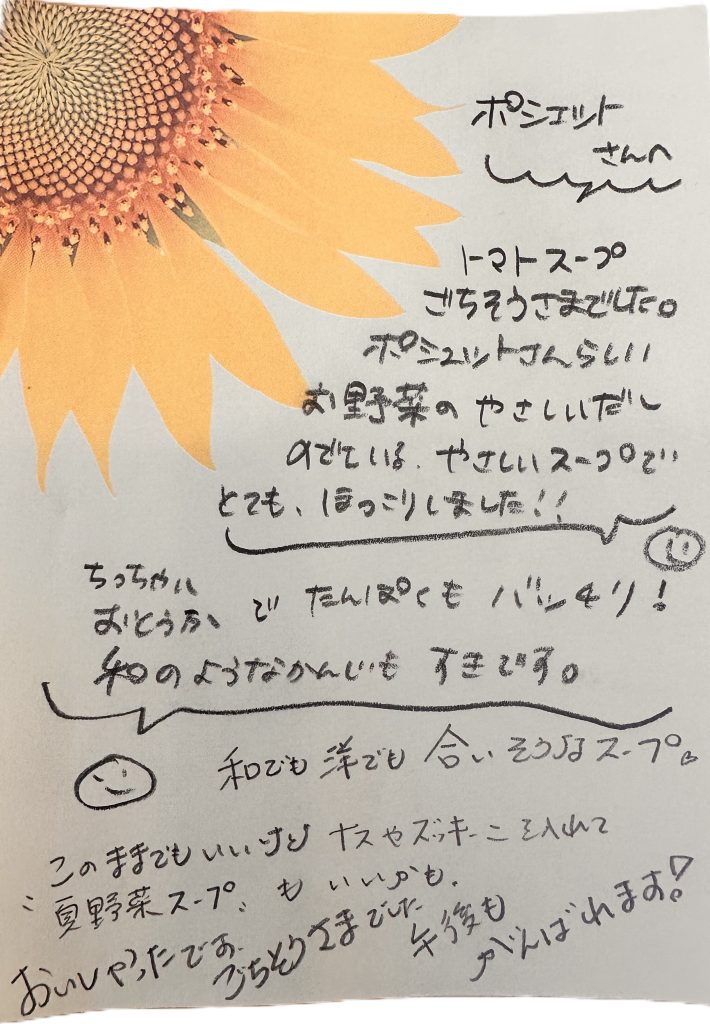 ポシェット
さんへ
トマトスープ
ごちそうさまでした。
ポシェットさんらしい
お野菜の やさしいだし
のでている、やさしいスープで
とても、ほっこりしました!!
ちっちゃい
おとうふ で たんぱくも バッチリ!
和のようなかんじも すきです。
和でも洋でも 合いそうなスープ。
このままでもいいけど ナスやズッキーニを入れて
"夏野菜スープ" も いいかも。
おいしかったです。
ごちそうさまでした
午後も
がんばれます!